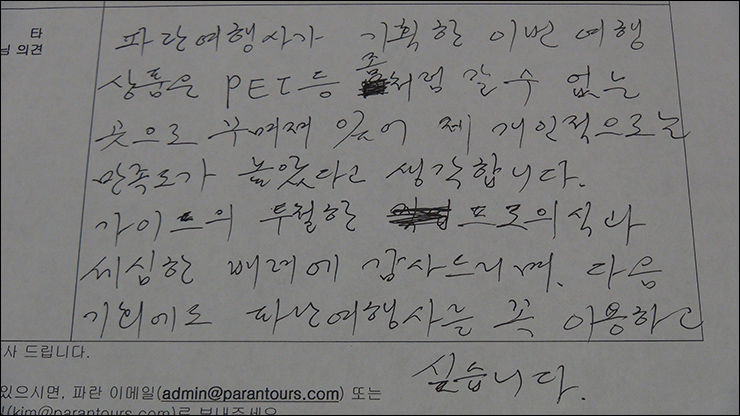 타
님 의견
파란여행사가 기획한 이번 여행
상품은 PET등 좀처럼 갈 수 없는
곳으로 꾸며져 있어 제 개인적으로는
만족도가 높았다고 생각합니다.
가이드의 투철한 프로의식과
세심한 배려에 감사드리며. 다음
기회에도 파란여행사를 꼭 이용하고
싶습니다.
사 드립니다.
있으시면, 파란 이메일(admin@parantours.com) 또는
(kim@parantours.com)로 보내주세요